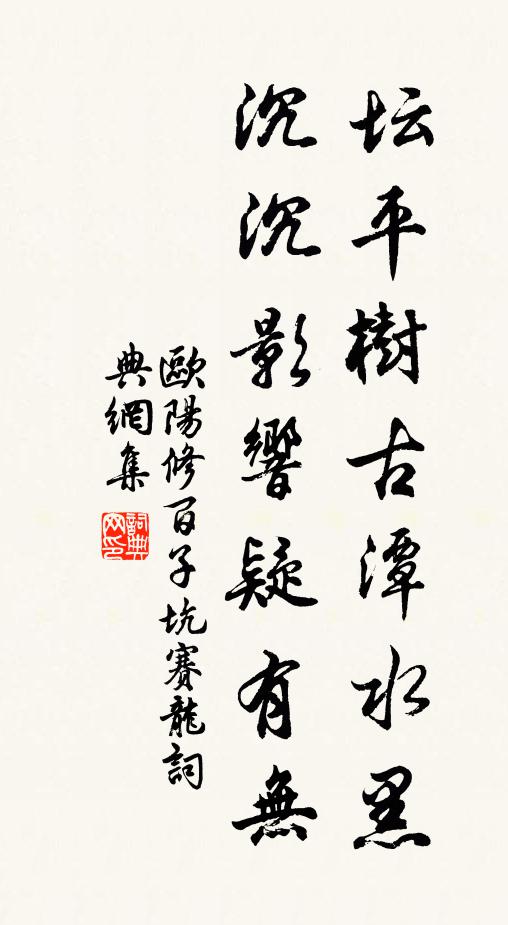 坛平樹古潭水黑
沉沉影響疑有無
歐陽修百子坑賽龍詞
典網集
詞典網印